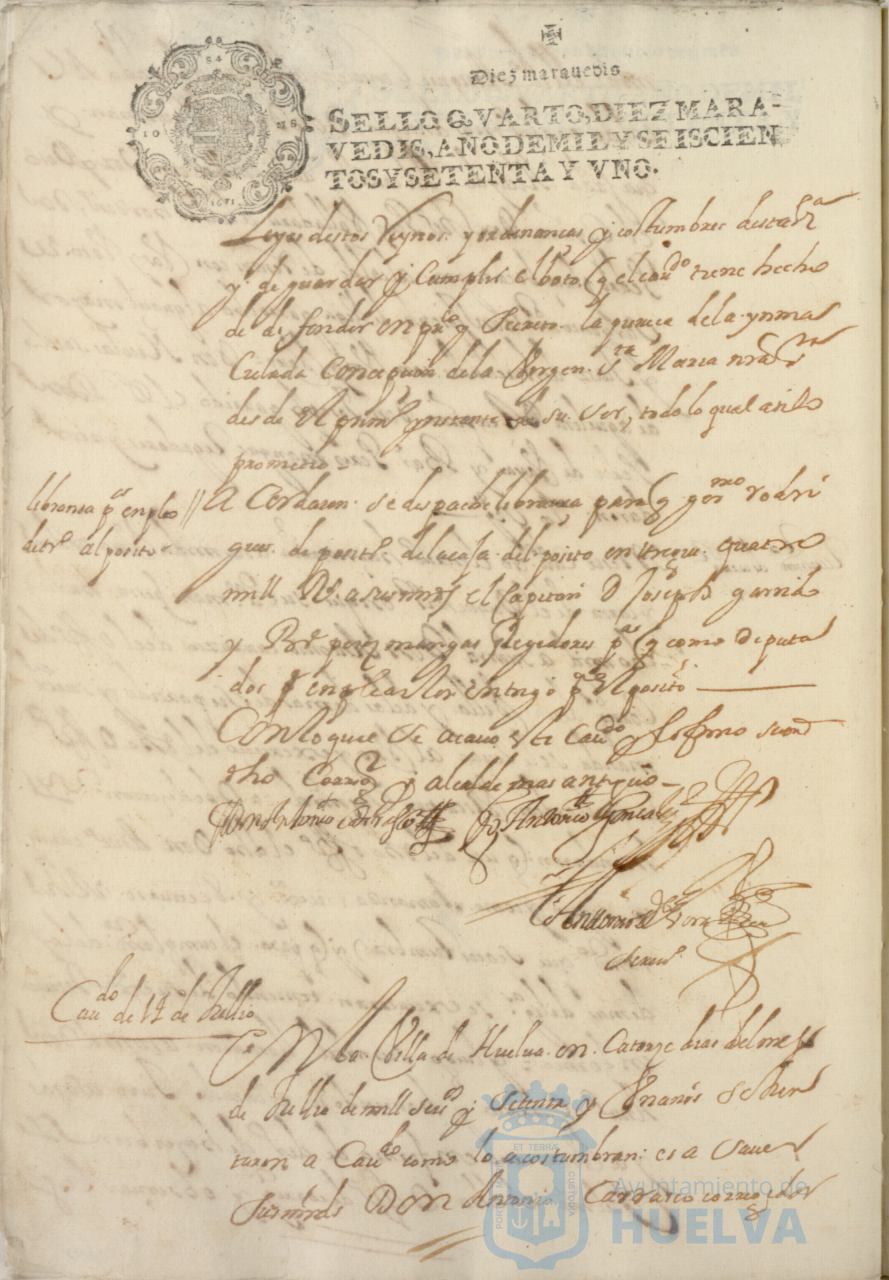 Diez maravedis
SELLO QVARTO, DIEZ MARA-
VEDIS, AÑO DE MIL Y SEISCIEN
TOS Y SETENTA Y VNO.
1671
Leyes destos Reynos y ordenanças y costumbres desta
y de guardar y cumplir el boto q el cavdo tiene hecho
de defender en puco y secreto la pureça de la ynma
culada concepcion de la Virgen sta Maria nra sra
desde el primr ynstante de su ser, todo lo qual asi lo
prometio
libransa pa enpleo
de trº al posito
Acordaron se despache libransa para q germo rodri
gues depositro de la casa del posito entregue quatro
mill Rs a sus mrds el Capitan D Joseph garrido
y perez mangas Regidores pa q como diputa
dos pa enplearlos en trigo pa el posito
Con lo que se acavo este cavdo y lo firmo
dho Corregor y alcalde mas antiguo
Antonio
Antonio de
Cavdo de 14 de Jullio
En la Villa de Huelva en catorze dias del mes
de Jullio de mill seisos y setenta y Un años se Jun
taron a Cavdo como lo acostumbran es a saver
sus mrds Don Antonio Carrasco corregidor
PORTUS MARIS
ET TERRAE
CUSTODIA
Ayuntamiento de
HUELVA